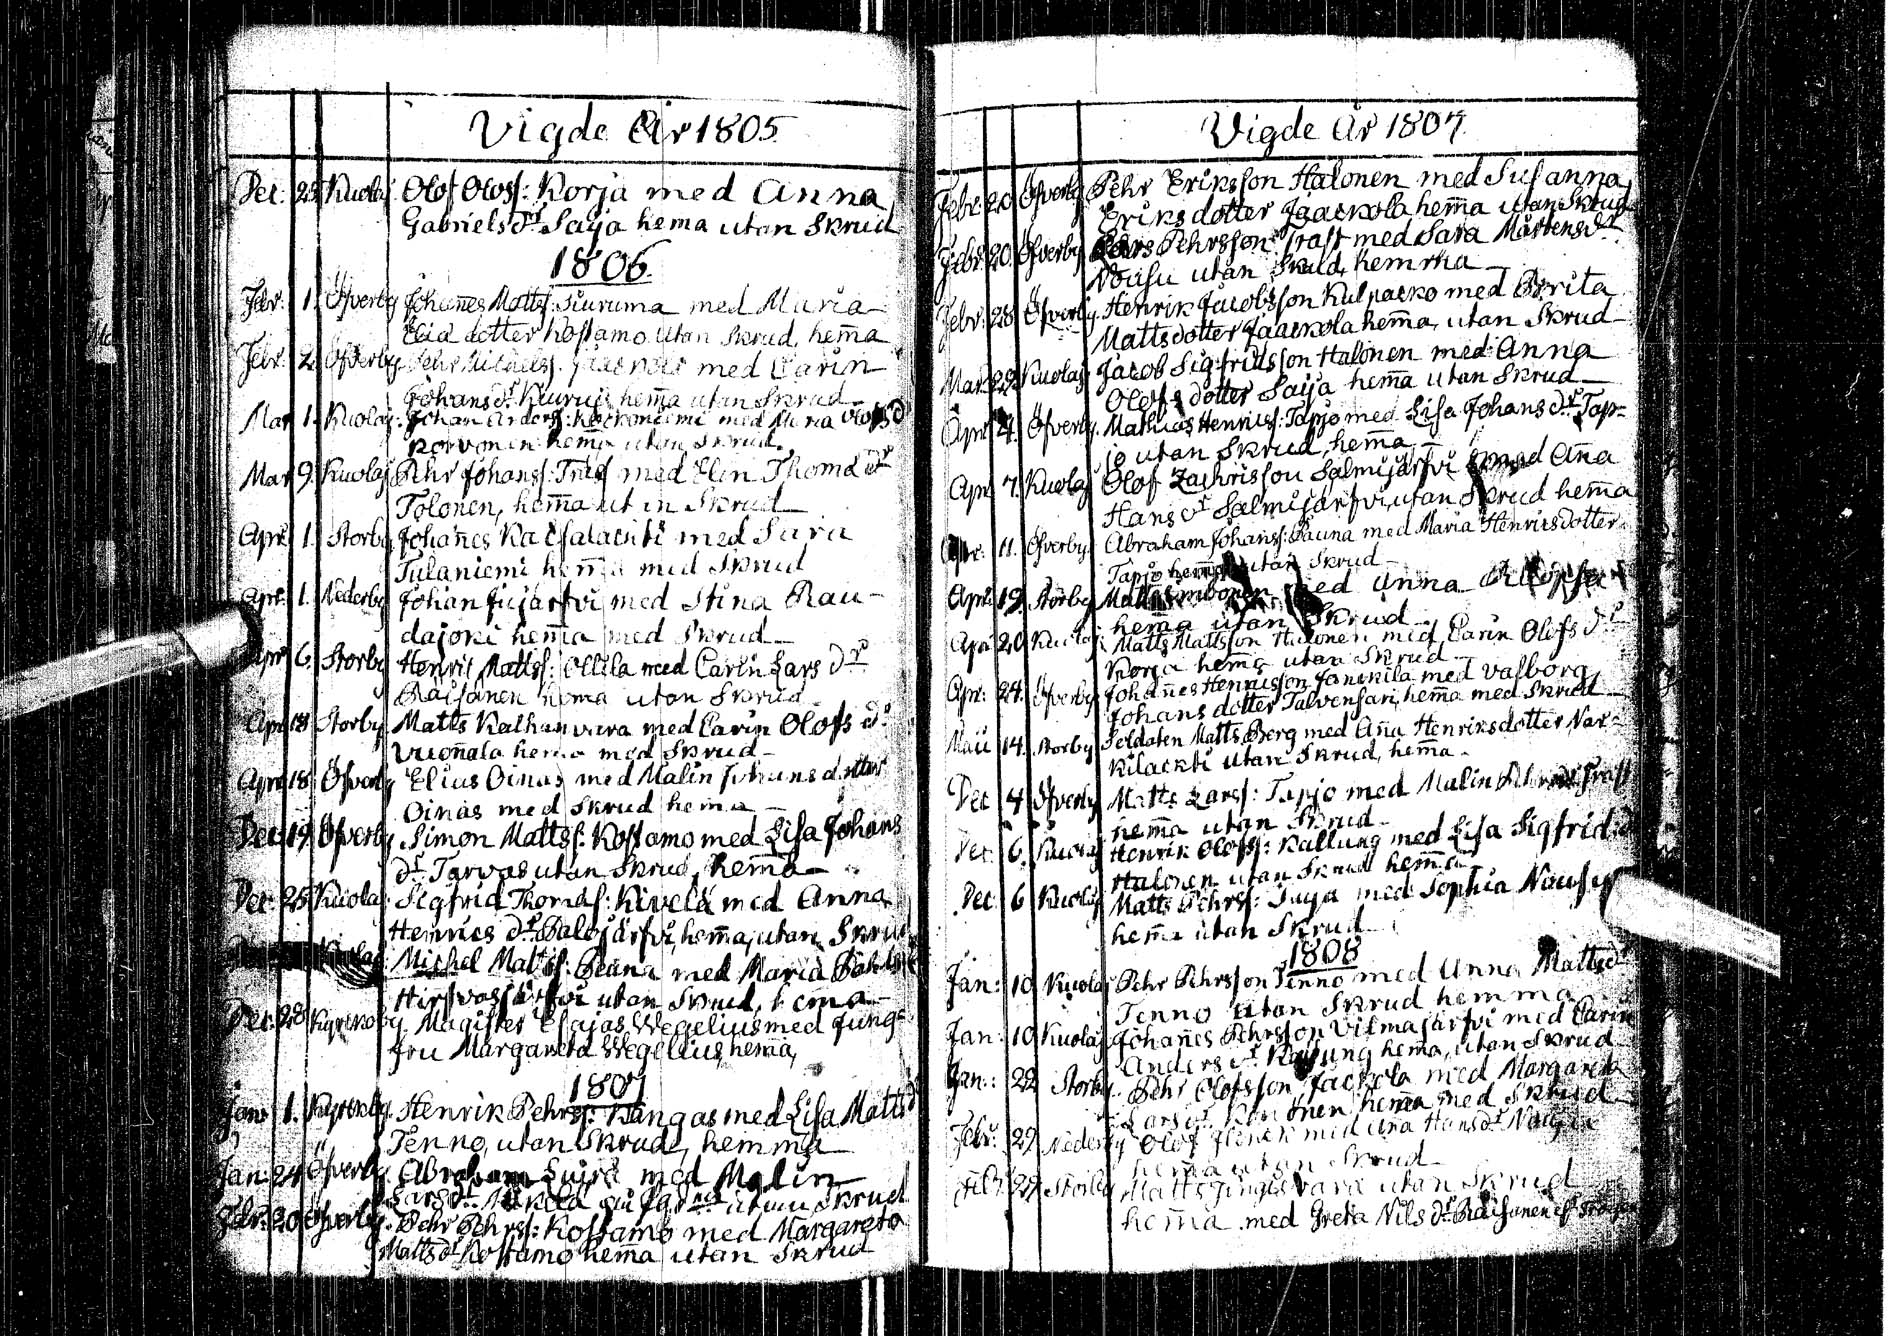 Vigde År 1805
Dec: 25. Kuolaj. Olof Olofs: Korja med Anna
Gabriels dr Saija hema utan Skrud
1806.
Febr: 1. Öfverby Johañes Matts: Siuruma med Maria
Elia dotter Kostamo utan Skrud, hem̃a
Febr: 2. Öfverby. Pehr Michels: med Carin
Johans dr hem̃a utan Skrud
Mar 1. Kuolaj: Johan Anders: med Maria Olofs d
hema utan Skrud.
Mar 9. Kuolaj Pehr Johans: Trast med Elin Thoma dr
Tolonen, hem̃a utan Skrud
Apr: 1. Storby Johañes med Sara
Tulaniemi hem̃a med Skrud
Apr: 1. Nederby Johan Jujärfvi med Stina Rau-
dajoki hem̃a med Skrud
Apr: 6. Storby Henric Matts: Ollila med Carin Lars dr
Räisänen hema utan Skrud
Apr 18 Storby Matts Kalhanvara med Carin Olofs dr
Vuoñala hema med Skrud
Apr 18. Öfverby Elias Oinas med Malin Johans dotter
Oinas med Skrud hema
Dec: 19. Öfverby. Simon Matts: Kostamo med Lisa Johans
dr Tarvas utan Skrud, hem̃a
Dec: 25 Kuolaj: Sigfrid Thomas: Kivelä med Anna
Henrics dr Palojärfvi, hem̃a, utan Skrud
Kuolaj: Michel Matts: Peuna med Maria
Hirsvasjärfvi utan Skrud, hema
Dec: 28 Kyrkoby. Magister Esajas Wegelius med Jung-
fru Margareta Wegelius hem̃a,
1807
Jan: 1. Kyrkby. Henrik Pehrs: Kangas med Lisa Matts d
Tenno, utan Skrud, hemma
Jan: 24 Öfverby. Abraham Luiro med Malin
Lars dr utan Skrud
Febr: 20 Öfverby. Pehr Pehrs: Kostamo med Margareta
Matts dr Kostamo hem̃a utan Skrud
Vigde År 1807.
Febr: 20. Öfverby Pehr Eriksson Halonen med Susanna
Eriksdotter Jaackola hem̃a utan Skrud
Febr: 20. Öfverby Lars Pehrsson Trast med Sara Mårtens dr
Nousu utan Skrud, hemma
Febr: 28 Öfverby. Henrik Jacobsson Kulpacko med Brita
Mattsdotter Jaackola hem̃a, utan Skrud
Mar: 29. Kuolaj. Jacob Sigfridsson Halonen med Anna
Olofs dotter Saija hem̃a utan Skrud
Apr: 4. Öfverby. Mathias Henrics: Tapjo med Lisa Johans dr Tap-
jo utan Skrud, hem̃a
Apr: 7. Kuolaj Olof Zachrisson Salmijärfvi med Aña
Hans dr Salmijärfvi, utan Skrud hem̃a
Apr: 11. Öfverby. Abraham Johans: Pauna med Maria Henricsdotter
Tapjo hem̃a utan Skrud
Apr: 19. Storby Matts med Anna
hema utan Skrud
Apr 20 Kuolaj: Matts Mattsson Halonen med Carin Olofs dr
Korja hema utan Skrud
Apr: 24. Öfverby Johañes Henricsson Janckila med Valborg
Johans dotter Talvensari, hem̃a med Skrud
Maii 14. Storby Soldaten Matts Berg med Aña Henriksdotter Nar-
kilackti utan Skrud, hem̃a.
Dec 4 Öfverby Matts Lars: Tapjo med Malin Trast
hem̃a utan Skrud
Dec: 6. Kuolaj Henrik Olofs: Kallung med Lisa Sigfrids d
Halonen utan Skrud hem̃a
Dec 6 Kuolaj Matts Pehrs: Saija med Sophia
hem̃a utan Skrud
1808
Jan: 10 Kuolaj Pehr Pehrsson Tenno med Anna Matts dr
Tenno utan Skrud hemma
Jan: 10 Kuolaj Johañes Pehrsson Vilmajärfvi med Carin
Anders dr Kallung hema, utan Skrud
Jan: 22 Storby. Pehr Olofsson Jackola med Margareta
Lars dr hem̃a med Skrud
Febr: 27. Nederby Olof med Aña Hans dr
hem̃a utan Skrud
27. Storby Matts Jungisvara utan Skrud
hem̃a med Greta Nils dr Räisänen